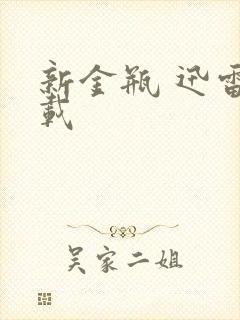 新金瓶 迅雷
載
吴家二姐